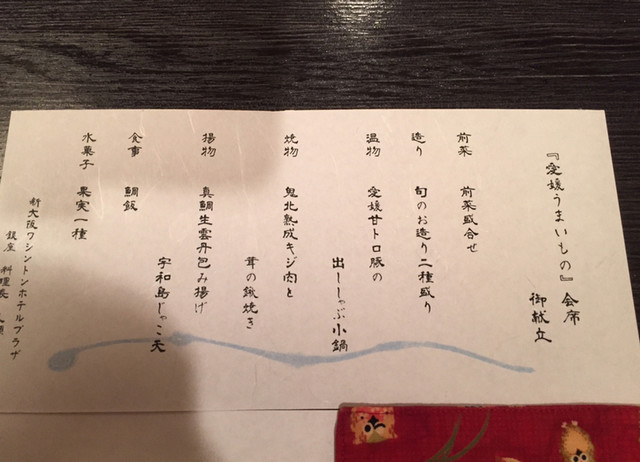 『愛媛うまいもの』会席
御献立
前菜 前菜盛合せ
造り 旬のお造り二種盛り
温物 愛媛甘トロ豚の
出ししゃぶ小鍋
焼物 鬼北熟成キジ肉と
茸の鍬焼き
揚物 真鯛生雲丹包み揚げ
宇和島じゃこ天
食事 鯛飯
水菓子 果実一種
新大阪ワシントンホテルプラザ
銀座 料理長